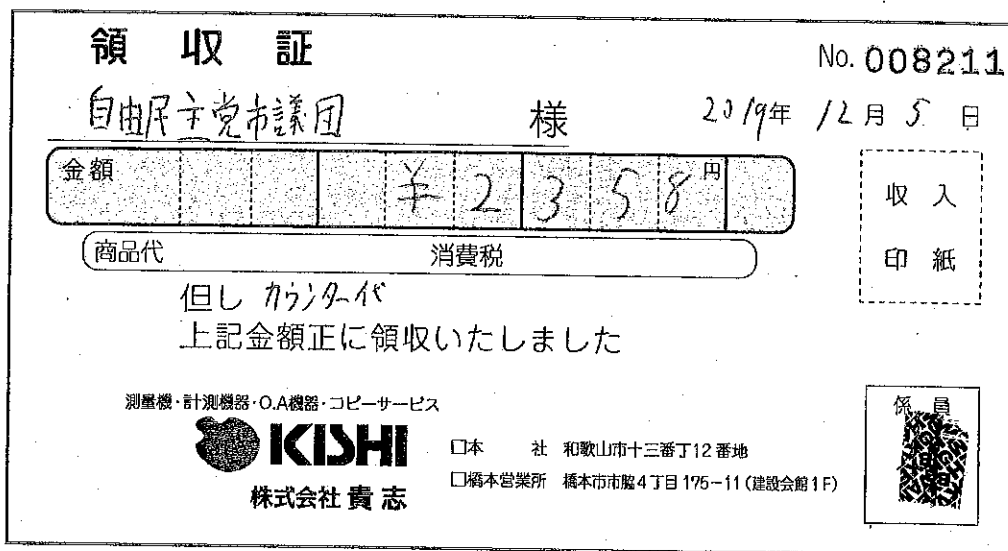 領収証
No. 008211
自由民主党市議団 様
2019年 12月 5日
金額 ¥2358円
収入
印紙
商品代 消費税
但し カウンター代
上記金額正に領収いたしました
測量機・計測機器・O.A機器・コピーサービス
係員
KISHI
株式会社 貴志
□本 社 和歌山市十三番丁12番地
□橋本営業所 橋本市市脇4丁目175-11(建設会館1F)